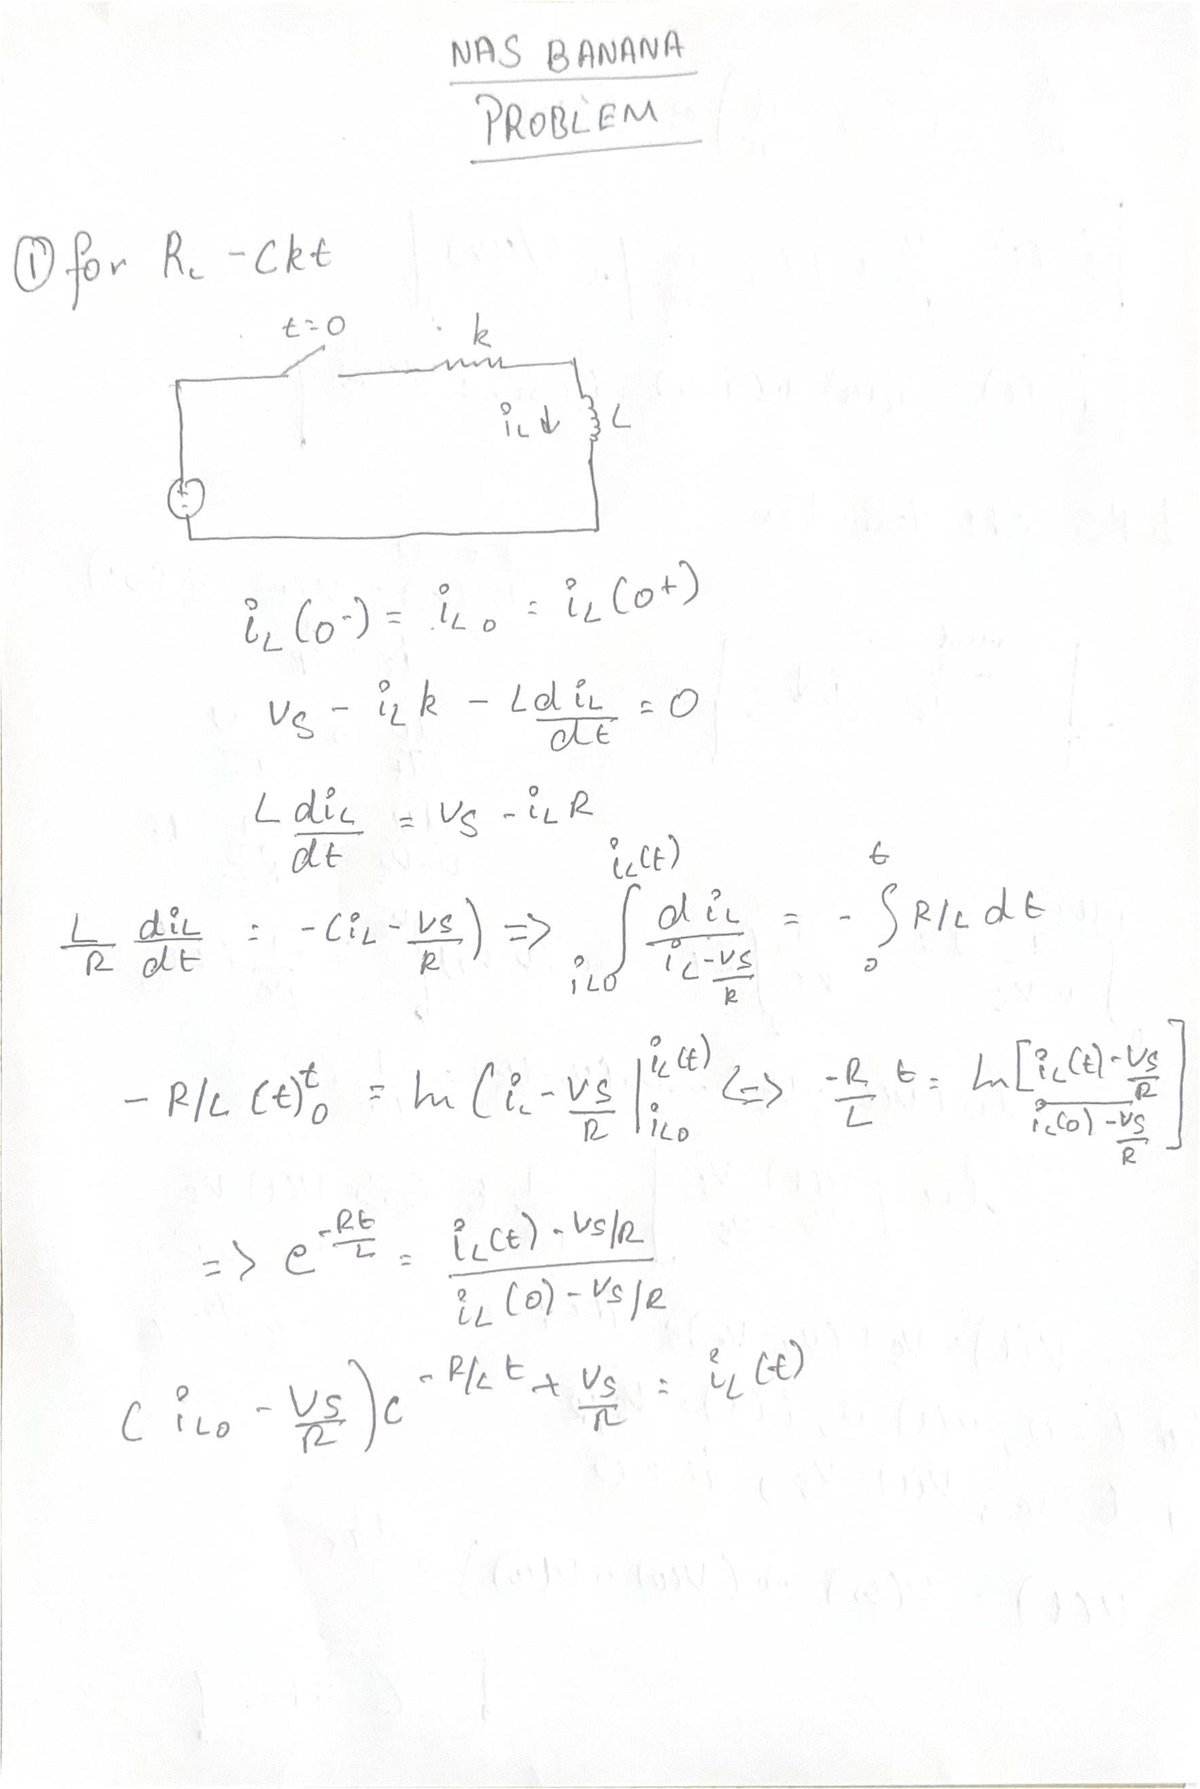 NAS BANANA
PROBLEM
① for R_L - Ckt
t=0 k
i_L ↓ L
+ -
i_L (0-) = i_L0 = i_L (0+)
V_S - i_L k - L di_L/dt = 0
L di_L/dt = V_S - i_L R
L/R di_L/dt = -(i_L - V_S/R) => ∫_{i_L0}^{i_L(t)} di_L/(i_L - V_S/R) = - ∫_0^t R/L dt
- R/L (t)_0^t = ln (i_L - V_S/R |_{i_L0}^{i_L(t)} <=> -R/L t = ln [(i_L(t) - V_S/R)/(i_L(0) - V_S/R)]
=> e^{-Rt/L} = (i_L(t) - V_S/R)/(i_L(0) - V_S/R)
(i_L0 - V_S/R) e^{-R/L t} + V_S/R = i_L(t)